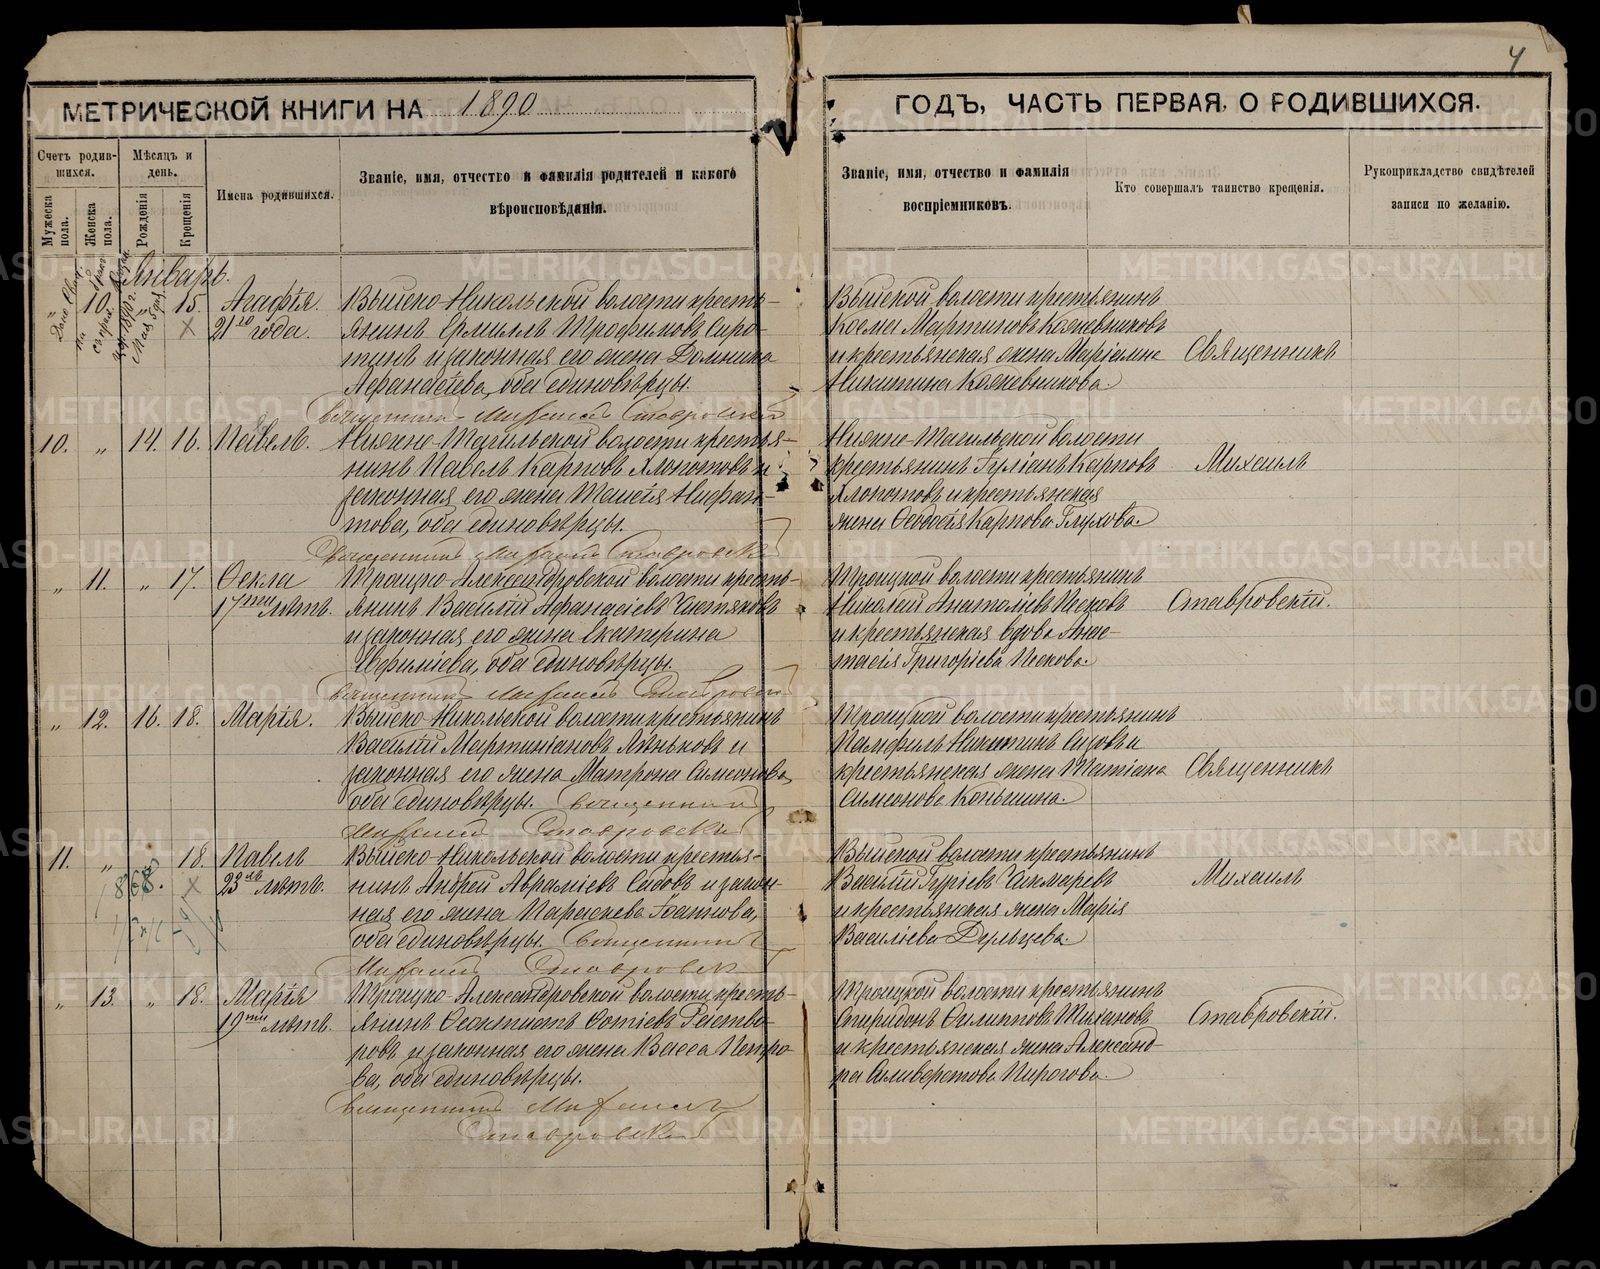 4
МЕТРИЧЕСКОЙ КНИГИ НА 1890
ГОДЪ, ЧАСТЬ ПЕРВАЯ, О РОДИВШИХСЯ.
Счетъ родив-
шихся.
Мѣсяцъ и
день.
Мужеска
пола.
Женска
пола.
Рожденія
Крещенія
Имена родившихся.
Званіе, имя, отчество и фамилія родителей и какого
вѣроисповѣданія.
Званіе, имя, отчество и фамилія
воспріемниковъ.
Кто совершалъ таинство крещенія.
Рукоприкладство свидѣтелей
записи по желанію.
Январь.
„ 10. „ 15. Агафія.
21го года.
Выйско-Никольской волости кресть-
янинъ Ермиллъ Трофимовъ Сиро-
тинъ и законная его жена Домника
Афанасіева, оба единовѣрцы.
Священникъ Михаилъ Ставровскій
Выйской волости крестьянинъ
Косма Мартиновъ Кожевниковъ
и крестьянская жена Маріамна
Никитина Кожевникова.
Священникъ
10. „ 14. 16. Павелъ.
Нижне-Тагильской волости крестья-
нинъ Павелъ Карповъ Хлопотовъ и
законная его жена Таисія Нифан-
това, оба единовѣрцы.
Священникъ Михаилъ Ставровскій
Нижне-Тагильской волости
крестьянинъ Іуліанъ Карповъ
Хлопотовъ и крестьянская
жена Ѳеодосія Карпова Глухова.
Михаилъ
„ 11. „ 17. Ѳекла
17ти лѣтъ.
Троицко-Александровской волости кресть-
янинъ Василій Афанасіевъ Чистяковъ
и законная его жена Екатерина
Евфиміева, оба единовѣрцы.
Священникъ Михаилъ Ставровскій
Троицкой волости крестьянинъ
Николай Анатоліевъ Песковъ
и крестьянская вдова Анас-
тасія Григоріева Пескова.
Ставровскій.
„ 12. 16. 18. Марія.
Выйско-Никольской волости крестьянинъ
Василій Мартиніановъ Ляньковъ и
законная его жена Матрона Симеонова,
оба единовѣрцы. Священникъ
Михаилъ Ставровскій
Троицкой волости крестьянинъ
Памфилъ Никитинъ Сизовъ и
крестьянская жена Татіана
Симеонова Коньшина.
Священникъ
11. „ 18. Павелъ
1868. 23хъ лѣтъ.
Выйско-Никольской волости крестья-
нинъ Андрей Аврамiевъ Садовъ и закон-
ная его жена Параскева Іоаннова,
оба единовѣрцы. Священникъ
Михаилъ Ставровскій
Выйской волости крестьянинъ
Василій Гуріевъ Чикмаревъ
и крестьянская жена Марія
Василіева Дульцева.
Михаилъ
„ 13. „ 18. Марія
19ти лѣтъ.
Троицко-Александровской волости кресть-
янинъ Ѳеоктистъ Фотіевъ
и законная его жена Васса Петро-
ва, оба единовѣрцы.
Священникъ Михаилъ
Ставровскій
Троицкой волости крестьянинъ
Спиридонъ Филипповъ Тихановъ
и крестьянская жена Александ-
ра Силиверстова Пирогова.
Ставровскій.
METRIKI.GASO-URAL.RU